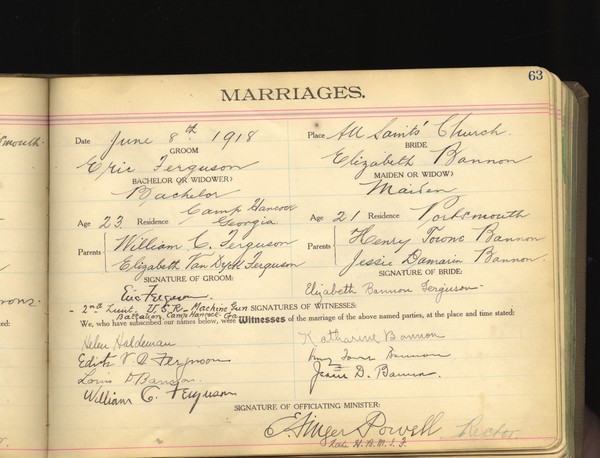 63
MARRIAGES.
Date June 8th 1918 Place All Saints' Church.
GROOM BRIDE
Eric Ferguson Elizabeth Bannon
BACHELOR (OR WIDOWER) MAIDEN (OR WIDOW)
Bachelor Maiden
Age 23 Residence Camp Hancock Georgia Age 21 Residence Portsmouth
Parents William C. Ferguson Henry Towne Bannon
Elizabeth Van Dyck Ferguson Jessie Damarin Bannon.
SIGNATURE OF GROOM: SIGNATURE OF BRIDE:
Eric Ferguson Elizabeth Bannon Ferguson
2nd Lieut. U.S.R. Machine Gun SIGNATURES OF WITNESSES:
Battalion, Camp Hancock Ga
We, who have subscribed our names below, were Witnesses of the marriage of the above named parties, at the place and time stated:
Helen Haldeman Katharine Bannon
Edith V D Ferguson Henry Towne Bannon
Louis D Bannon. Jessie D. Bannon.
William C. Ferguson
SIGNATURE OF OFFICIATING MINISTER:
E. Ainger Powell Rector
mouth.
rons.
ted: